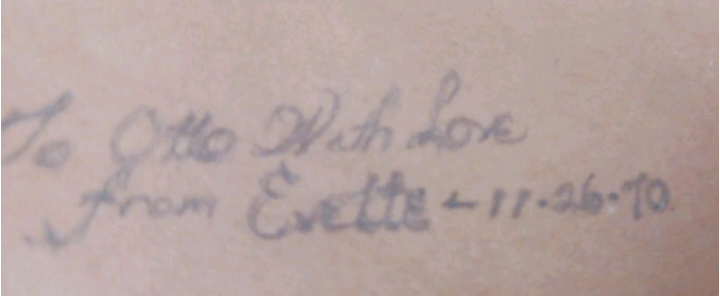 To Otto With Love
from Evette - 11-26-70